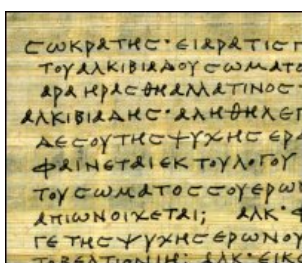 ϹωΚΡΑΤΗϹ· ΕΙ ΑΡΑ ΤΙϹ
ΤΟΥ ΑΛΚΙΒΙΑΔΟΥ ϹωΜΑΤΟ
ΑΡΑ ΗΡΑϹΘΗ ΑΛΛΑ ΤΙΝΟϹ
ΑΛΚΙΒΙΑΔΗϹ· ΑΛΗΘΗ ΛΕΓ
ΔΕ ϹΟΥ ΤΗϹ ΨΥΧΗϹ ΕΡ
ΦΑΙΝΕΤΑΙ ΕΚ ΤΟΥ ΛΟΓΟΥ
ΤΟΥ ϹωΜΑΤΟϹ ϹΟΥ ΕΡω
ΑΠΙωΝ ΟΙΧΕΤΑΙ; ΑΛΚ·
ΓΕ ΤΗϹ ΨΥΧΗϹ ΕΡωΝ ΟΥ
ΤΟ ΒΕΛΤΙΟΝ ΙΗ; ΑΛΚ· ΕΙΚ